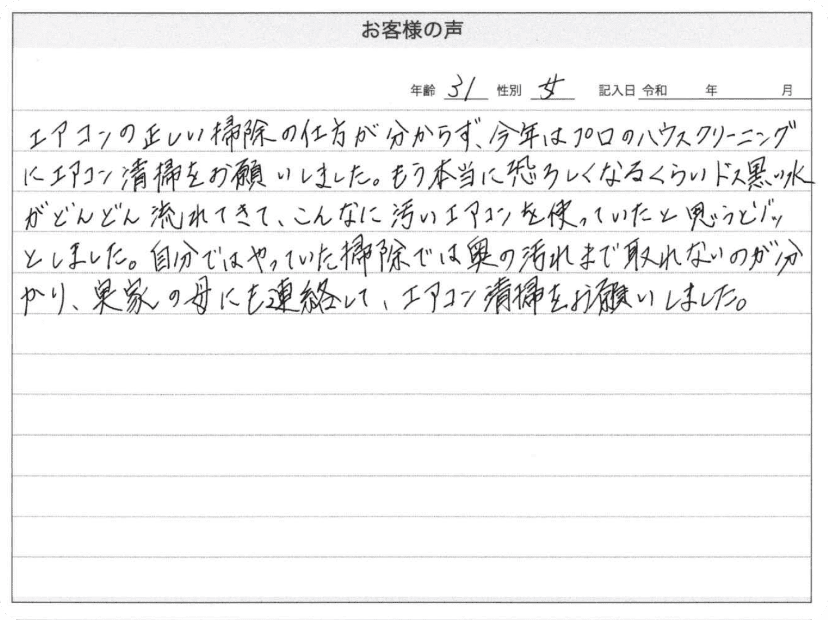 お客様の声
年齢 31 性別 女 記入日 令和 年 月
エアコンの正しい掃除の仕方が分からず、今年はプロのハウスクリーニング
にエアコン清掃をお願いしました。もう本当に恐ろしくなるくらいドス黒い水
がどんどん流れてきて、こんなに汚いエアコンを使っていたと思うとゾッ
としました。自分ではやっていた掃除では奥の汚れまで取れないのが分
かり、実家の母にも連絡して、エアコン清掃をお願いしました。